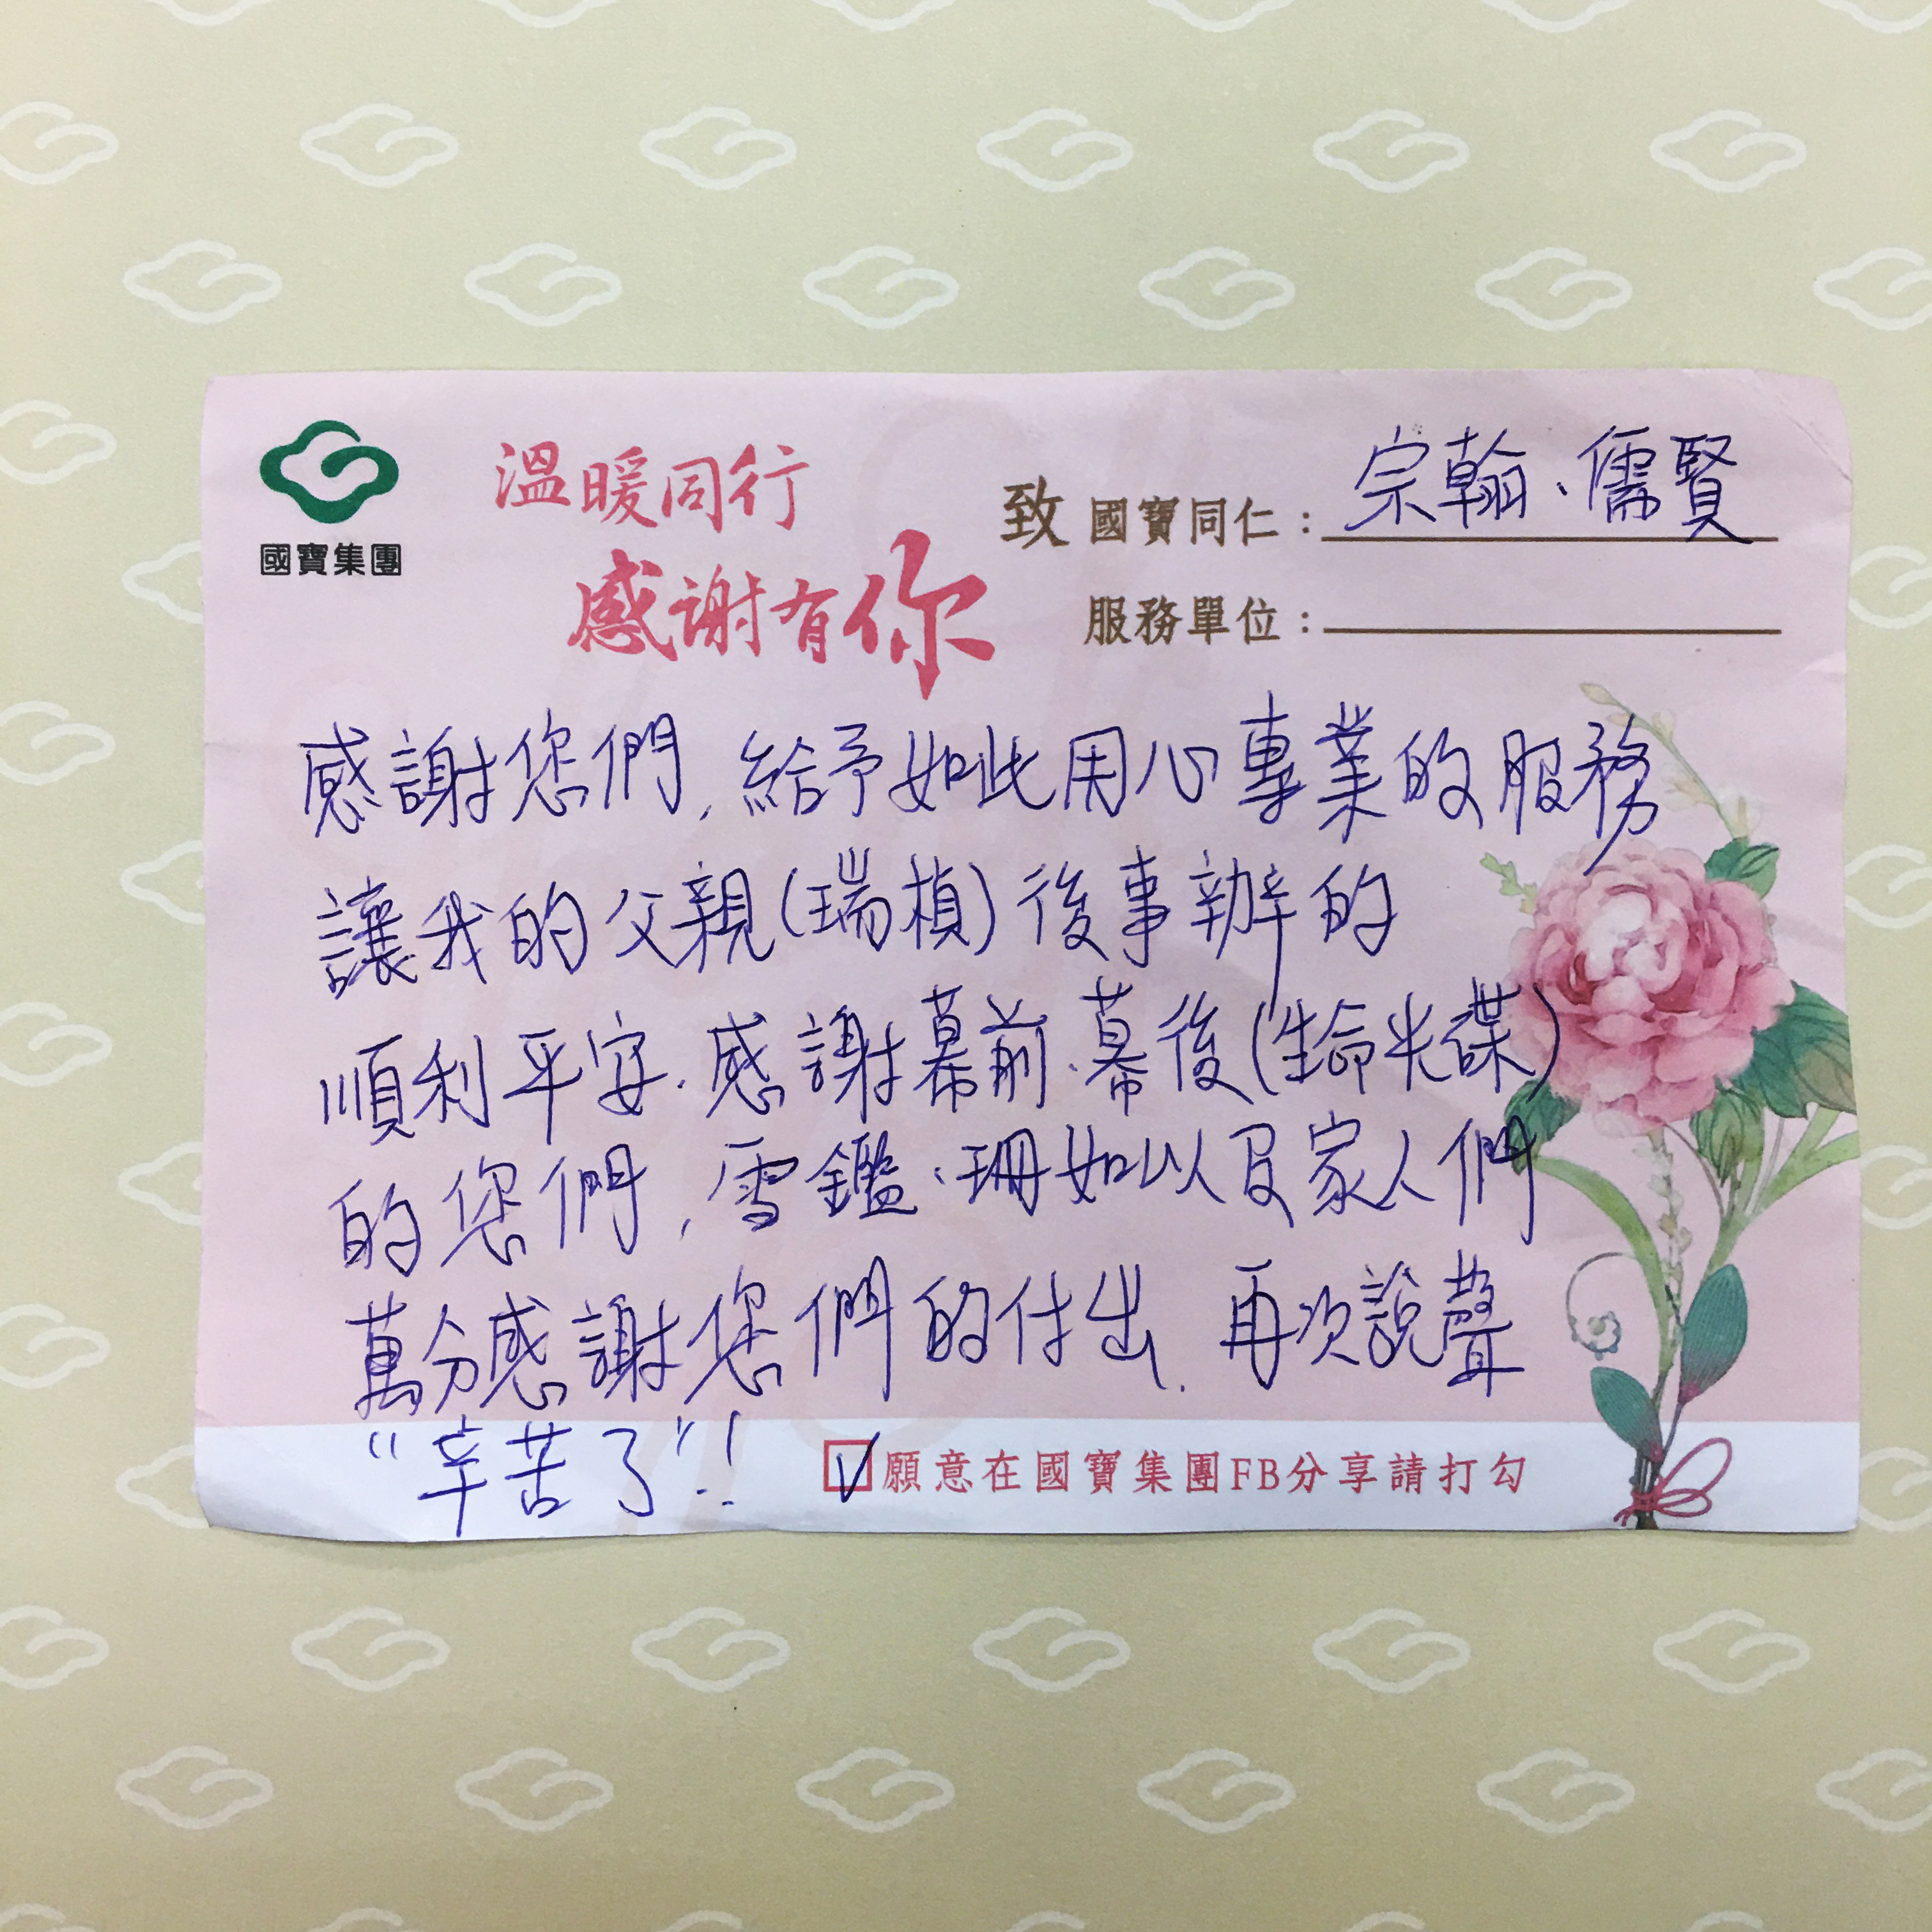 國寶集團
溫暖同行
感謝有你
致 國寶同仁：宗翰、儒賢
服務單位：
感謝您們，給予如此用心專業的服務
讓我的父親(瑞楨)後事辦的
順利平安.感謝幕前、幕後(生命光碟)
的您們，雪鑑、珊如以及家人們
萬分感謝您們的付出.再次說聲
“辛苦了”!!
☑願意在國寶集團FB分享請打勾